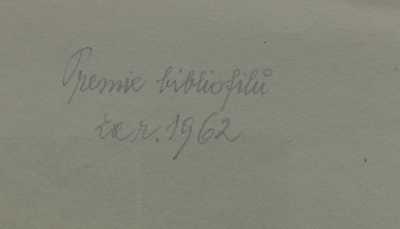 Premie bibliofilů
za r. 1962